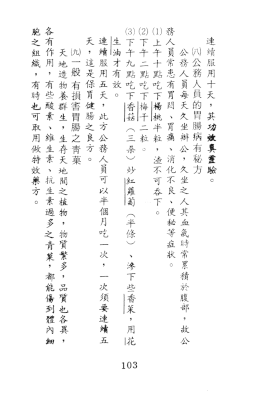 連續服用十天，其功效真靈驗。
㈧公務人員的胃腸病有秘方
公務人員每天久坐辦公，久坐之人其血氣時常累積於腹部，故公
務人員常患有胃悶、胃痛、消化不良、便秘等症狀。
⑴上午十點吃下楊桃半粒，渣不可吞下。
⑵下午二點吃下梅干二粒。
⑶下午九點吃下香菇（三条）炒紅蘿蔔（半條）、
下些香菜，用花
生油才有效。
連續服用五天，此方公務人員可以半個月吃一次，一次須要連續五
天，這是保胃健腸之良方。
㈨一般有損害胃腸之青菓
天地造物養群生，生存天地間之植物，物質繁多，品質也各異，
各有作用，有些酸素、維生素、抗生素過多之青菓，都能傷到體內細
胞之組織，有時也可取用做特效藥方。
103